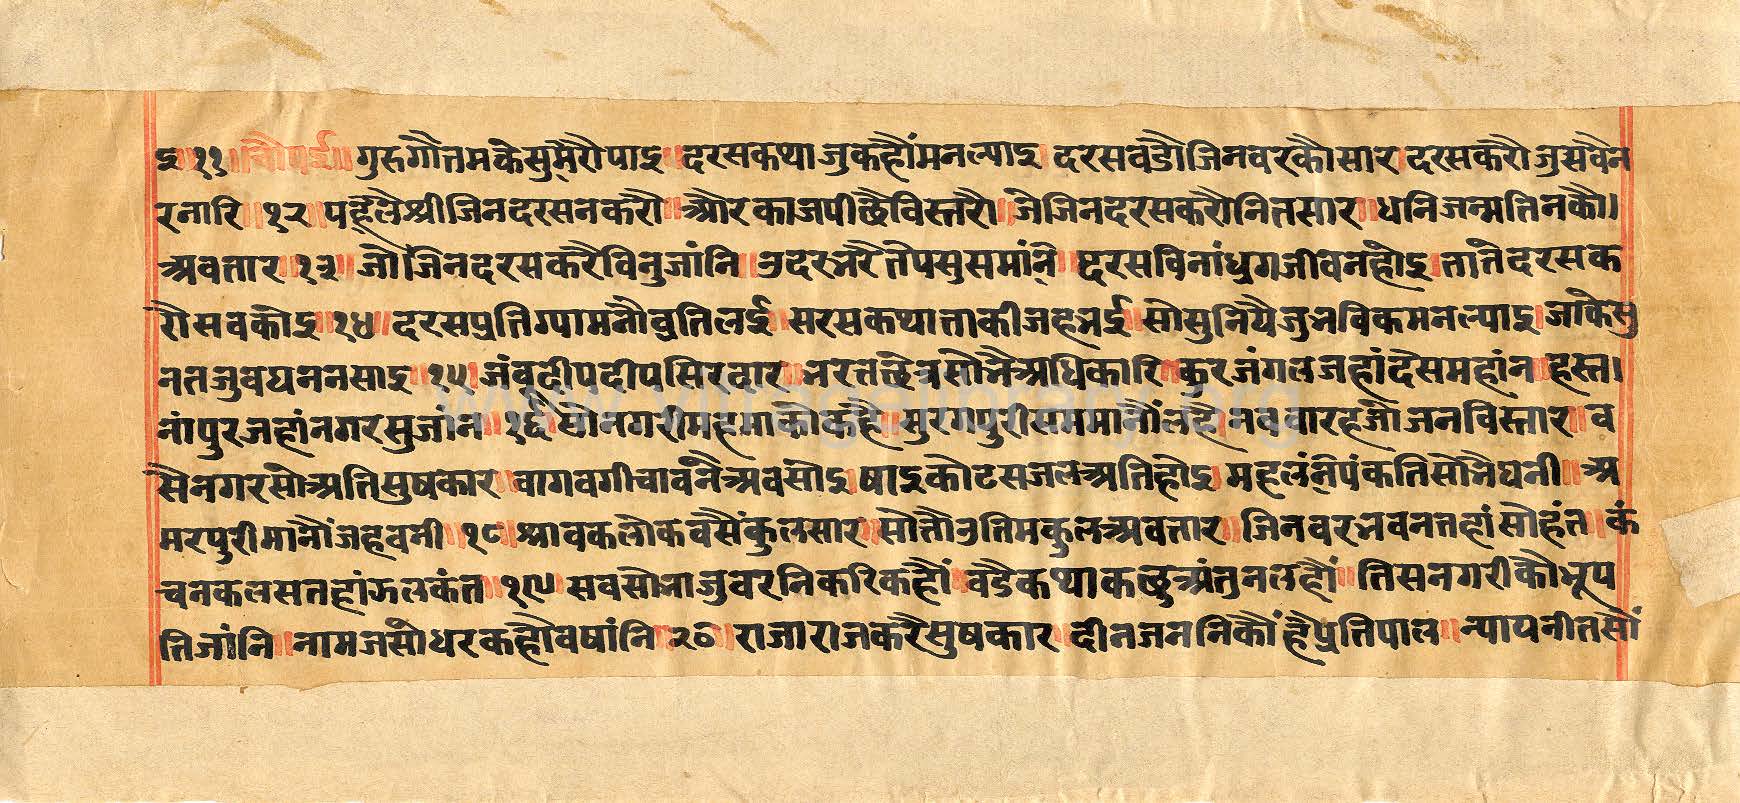 इ॥११॥चौपई॥गुरुगौतमकेसुमरौपाइ॥दरसकथाजुकहौंमनल्याइ॥दरसवडोजिनवरकौसार॥दरसकरौजुसवैन
रनारि॥१२॥पहलैश्रीजिनदरसनकरौ॥औरकाजपीछैविस्तरौ॥जेजिनदरसकरौनितसार॥धनिजन्मतिनकौ।
अवतार॥१३॥जौजिनदरसकरैविनुजांनि॥उदरभरैतेपसुसमांनै॥दरसविनांध्रुगजीवनहोइ॥तातैदरसक
रौसवकोइ॥१४॥दरसप्रतिग्यामनौव्रतिलई॥सरसकथाताकीजहभई॥सोसुनियैजुभविकमनल्याइ॥जाकेसु
नतजुवघननसाइ॥१५॥जंवूदीपदीपसिरदार॥भरतछेत्रसोभैअधिकारि॥कुरजंगलजहांदेसमहांन॥हस्त।
नांपुरजहांनगरसुजांन॥१६॥सोनगरीमहमाकोकहै॥सुरगपुरीसममानौंलहै॥नववारहजोजनविस्तार॥व
सैनगरसोअतिसुषकार॥वागवगीचावंनैअवसोइ॥षाइकोटसजलअतिहोइ॥महलंनपंकतिसोभैघनी॥अ
मरपुरीमानौंजहवनी॥१८॥श्रावकलोकवसैंकुलसार॥सोतौउतिमकुलअवतार॥जिनवरभवनतहांसोहंत॥कं
चनकलसतहांझलकंत॥१९॥सवसोभाजुवरनिकरिकहौं॥वडैकथाकछुअंतुनलहौं॥तिसनगरीकौभूप
तिजांनि॥नामजसोधरकहौवषांनि॥२०॥राजाराजकरैसुषकार॥दीनजननिकौंहैप्रतिपाल॥न्यायनीतसौं
www.vitragelibrary.org